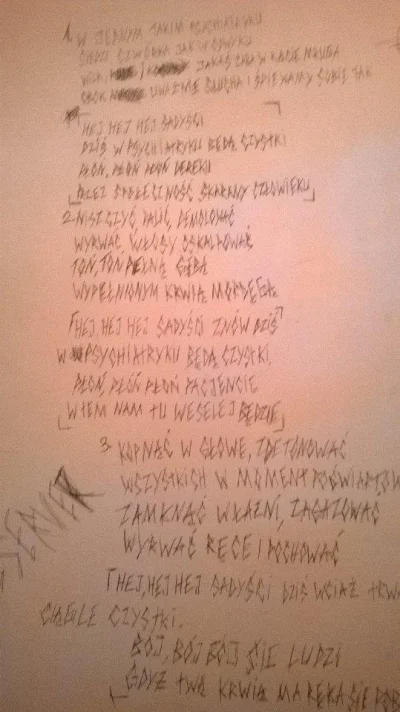 1. W JEDNYM TAKIM PSYCHIATRYKU
SIEDZI CZWÓRKA JAK W ODWYKU
JAKAŚ ĆMA W KĄCIE MRUGA
OBOK UWAŻNIE SŁUCHA I ŚPIEWAMY SOBIE TAK
HEJ HEJ HEJ SADYŚCI
DZIŚ W PSYCHIATRYKU BĘDĄ CZYSTKI
PŁOŃ, PŁOŃ PŁOŃ DEREKU
PRZEZ SPOŁECZNOŚĆ SKARANY CZŁOWIEKU
2. NISZCZYĆ, PALIĆ, DEMOLOWAĆ
WYRWAĆ WŁOSY OSKALPOWAĆ
TOŃ, TOŃ PEŁNĄ GĘBĄ
WYPEŁNIONYM KRWIĄ MORDĘGĄ
HEJ HEJ HEJ SADYŚCI ZNÓW DZIŚ
W PSYCHIATRYKU BĘDĄ CZYSTKI,
PŁOŃ, PŁOŃ PŁOŃ PACJENCIE
W TEM NAM TU WESELEJ BĘDZIE
3. KOPNĄĆ W GŁOWE, ZDETONOWAĆ
WSZYSTKICH W MOMENT POĆWIARTOW
ZAMKNĄĆ W ŁAŹNI, ZAGAZOWAĆ
WYRWAĆ RĘCE I POCHOWAĆ
HEJ, HEJ HEJ SADYŚCI DZIŚ WCIĄŻ TRWA
CZYSTKI.
BÓJ, BÓJ BÓJ SIE LUDZI
GDYŻ TWĄ KRWIĄ MA RĘKA SIĘ